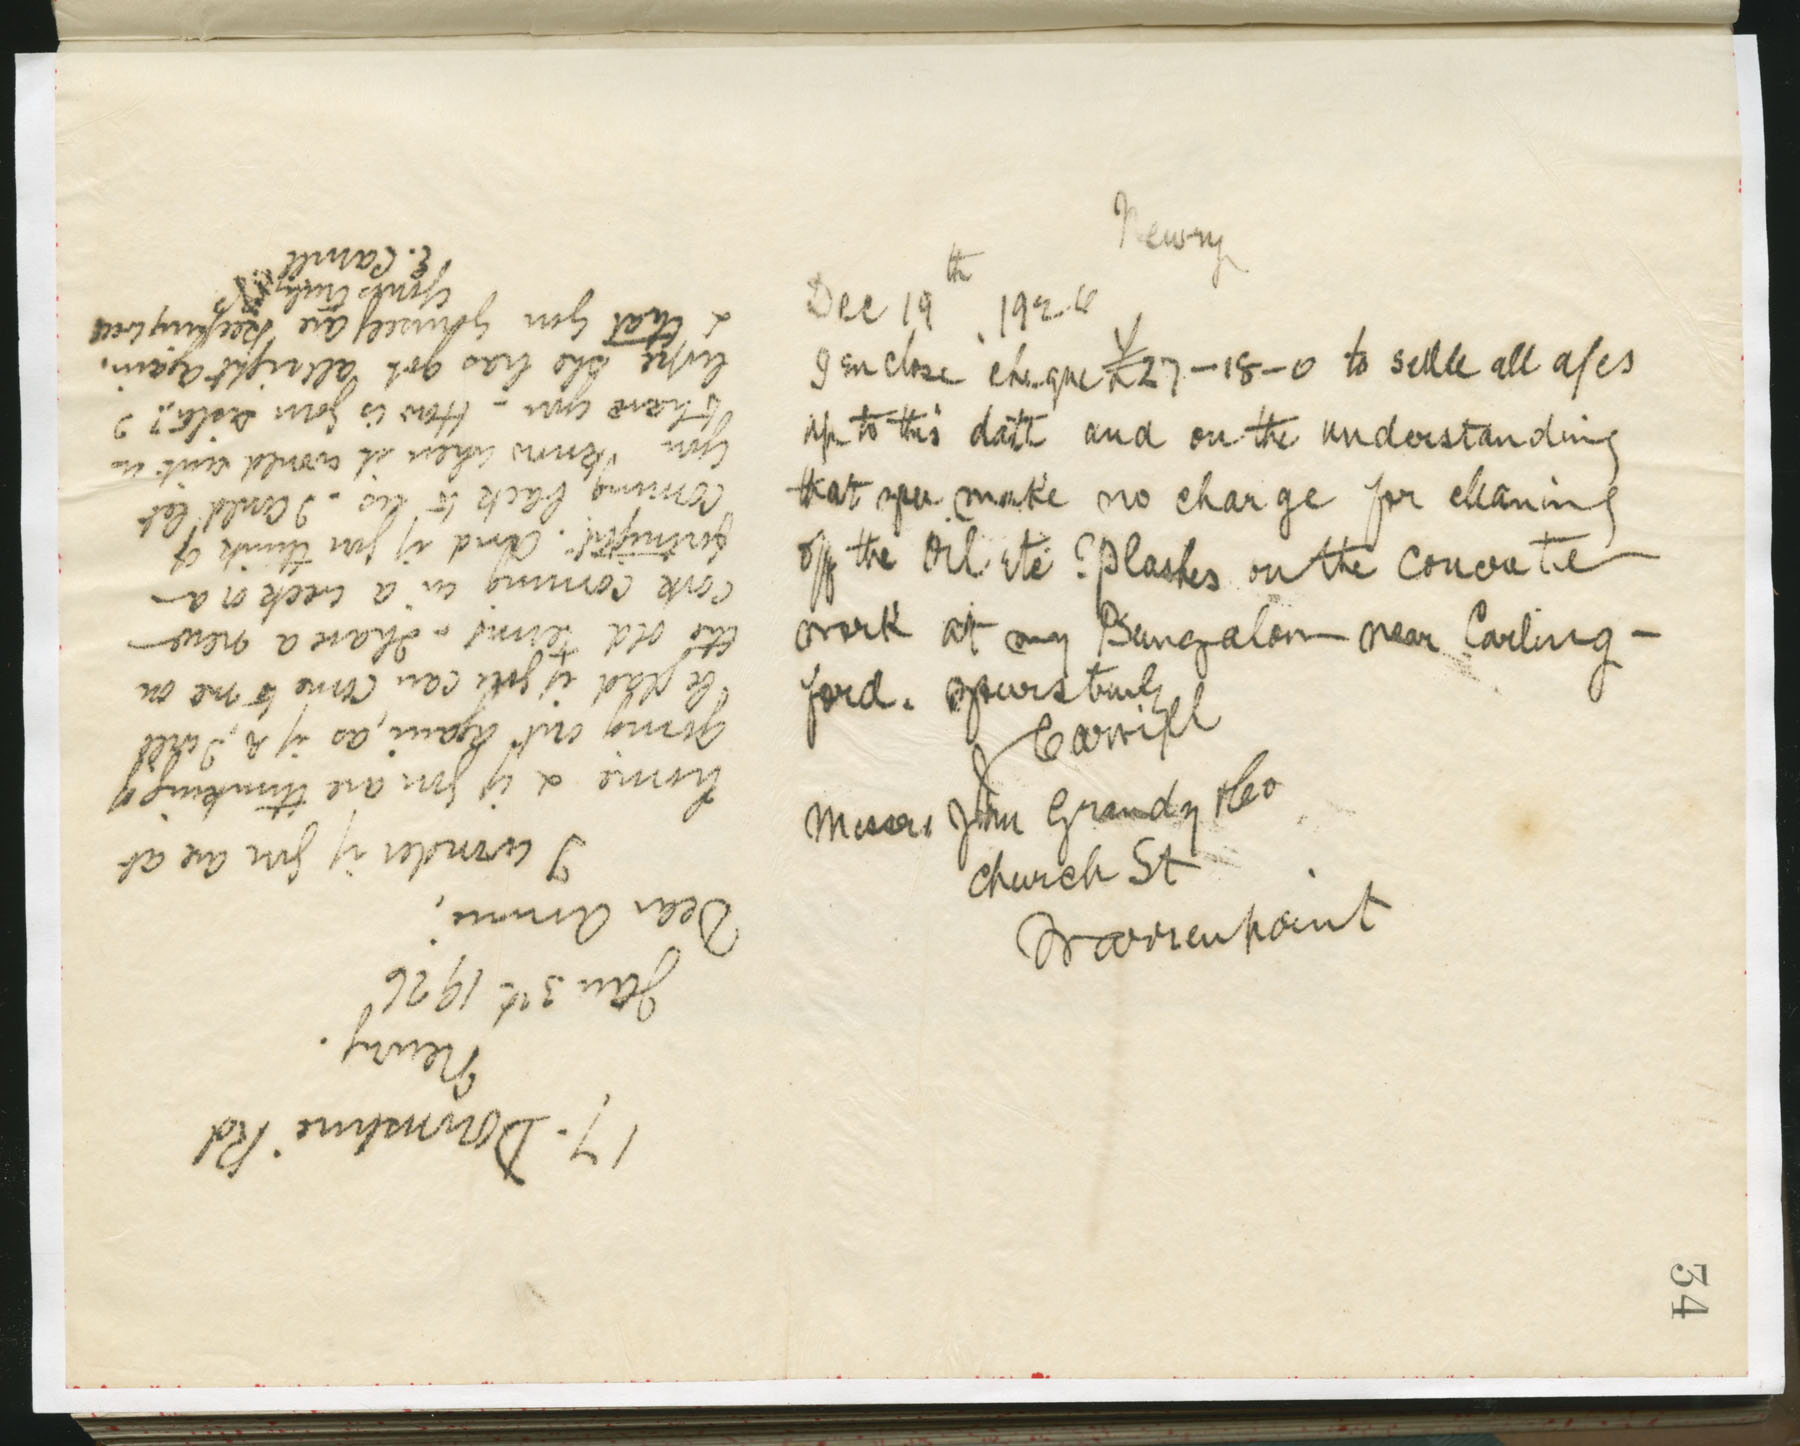 Newry
Dec 19th 192
I enclose cheque £27-18-0 to settle all a/cs
up to this date and on the understanding
that you make no charge for cleaning
off the Oil splashes on the concrete
work at my Bungalow near Carling-
ford. yours truly
J Carvill
Messrs John Grandy & Co
Church St
Warrenpoint
17- Downshire Rd
Newry.
Jan 3rd 1926
Dear Annie,
I wonder if you are at
home & if you are thinking of
going out again, as if so, I will
be glad if you can come to me on
the old terms - I have a new
cook coming in a week or a
fortnight. And if you think of
coming back to us - I could let
you know when it would suit us
to have you - How is your sister?
hope she has got allright again.
& that you yourself are keeping well
Yours truly
E. Carvill
34